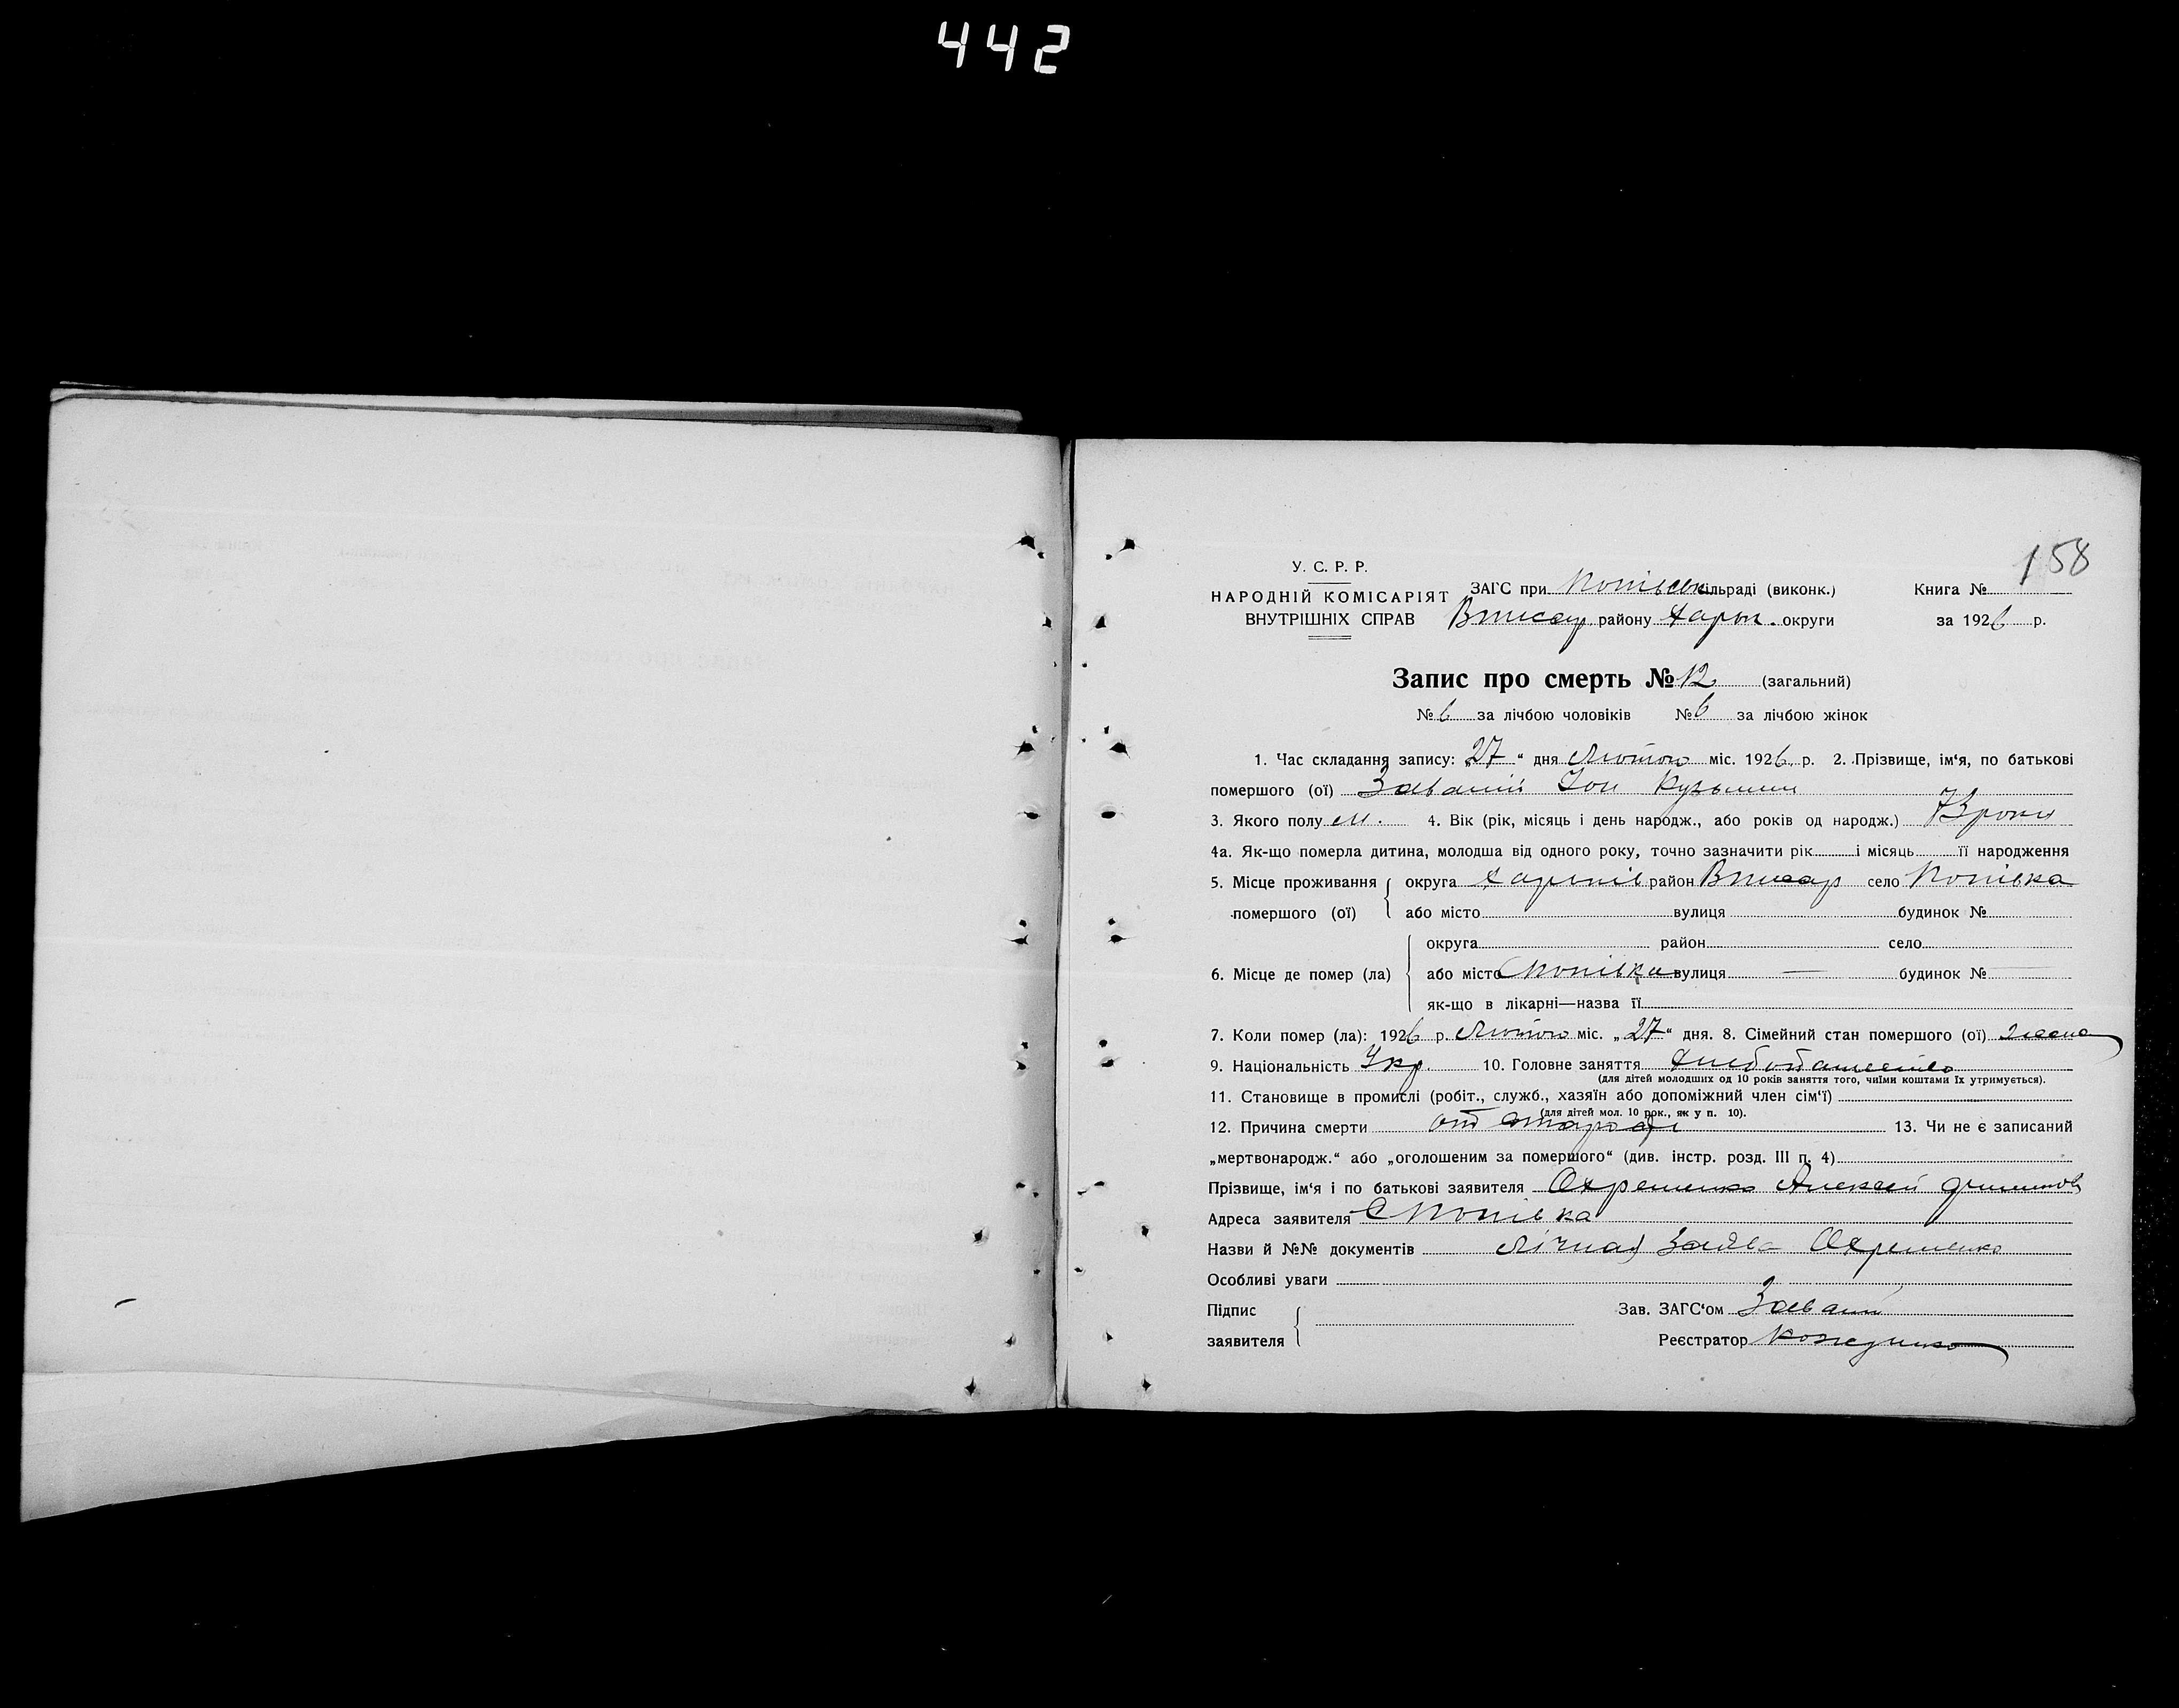 442
158
У. С. Р. Р.
НАРОДНІЙ КОМІСАРІЯТ
ВНУТРІШНІХ СПРАВ
ЗАГС при сільраді (виконк.) Книга №
району Харьк. округи за 1926 р.
Запис про смерть № 12 (загальний)
№ 6 за лічбою чоловіків № 6 за лічбою жінок
1. Час складання запису: „27“ дня Лютого міс. 1926 р. 2. Прізвище, ім‘я, по батькові
помершого (ої) Кузьмич
3. Якого полу м. 4. Вік (рік, місяць і день народж., або років од народж.) 73 роки
4а. Як-що померла дитина, молодша від одного року, точно зазначити рік і місяць її народження
5. Місце проживання округа Харьків район село Попівка
помершого (ої) або місто вулиця будинок №
округа район село
6. Місце де помер (ла) або місто С Попівка вулиця — будинок № —
як-що в лікарні—назва її
7. Коли помер (ла): 1926 р. Лютого міс. „27“ дня. 8. Сімейний стан помершого (ої)
9. Національність Укр. 10. Головне заняття
(для дітей молодших од 10 років заняття того, чиїми коштами їх утримується).
11. Становище в промислі (робіт., служб., хазяїн або допоміжний член сім‘ї)
(для дітей мол. 10 рок., як у п. 10).
12. Причина смерти от старості 13. Чи не є записаний
„мертвонародж.“ або „оголошеним за помершого“ (див. інстр. розд. III п. 4)
Прізвище, ім‘я і по батькові заявителя Охременко Алексей
Адреса заявителя С Попівка
Назви й №№ документів Лічная Заява Охременко
Особливі уваги
Підпис
заявителя
Зав. ЗАГС‘ом
Реєстратор